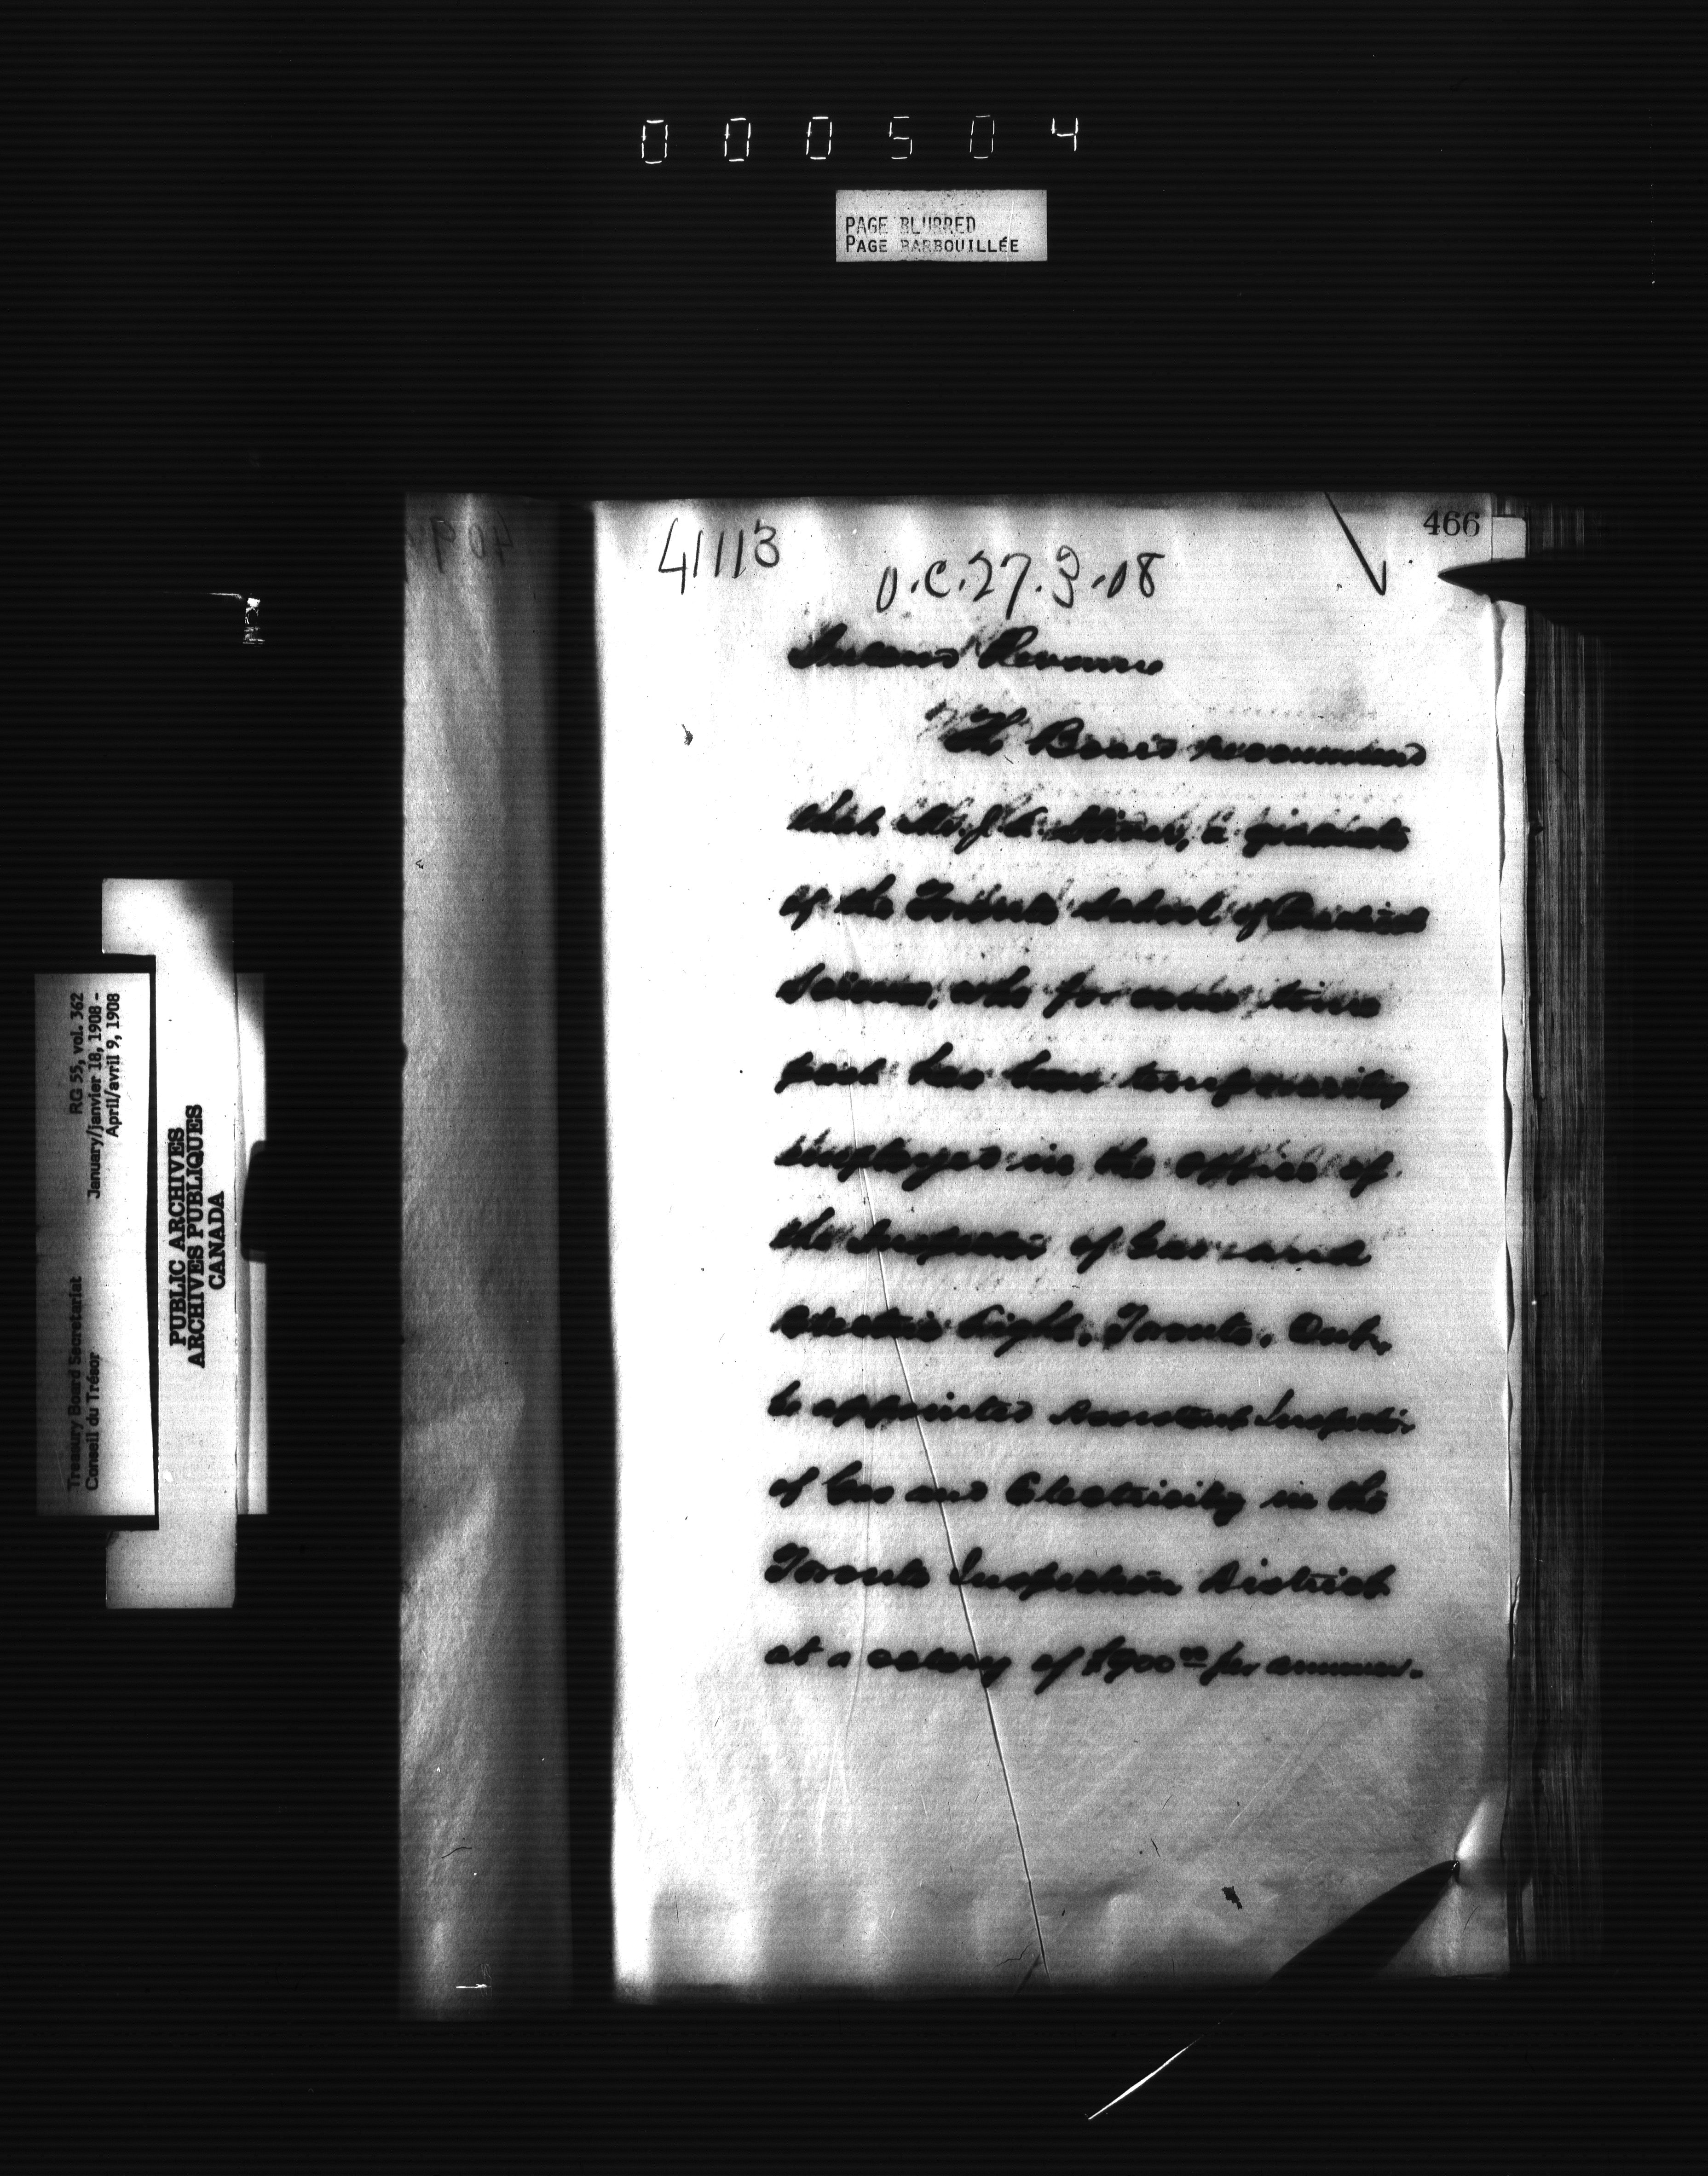 000504
PAGE BLURRED
PAGE BARBOUILLÉE
466
41113
O.C. 27.3.08
Inland Revenue
The Board recommend
that Mr. J. a graduate
of the Toronto School of Practical
Science, who for some time
past has been temporarily
employed in the office of
the Inspector of Gas and
Electric Light, Toronto, Ont.,
be appointed Assistant Inspector
of Gas and Electricity in the
Toronto Inspection District
at a salary of $900.00 per annum.
Treasury Board Secretariat RG 55, vol. 362
Conseil du Trésor January/janvier 18, 1908 -
April/avril 9, 1908
PUBLIC ARCHIVES
ARCHIVES PUBLIQUES
CANADA